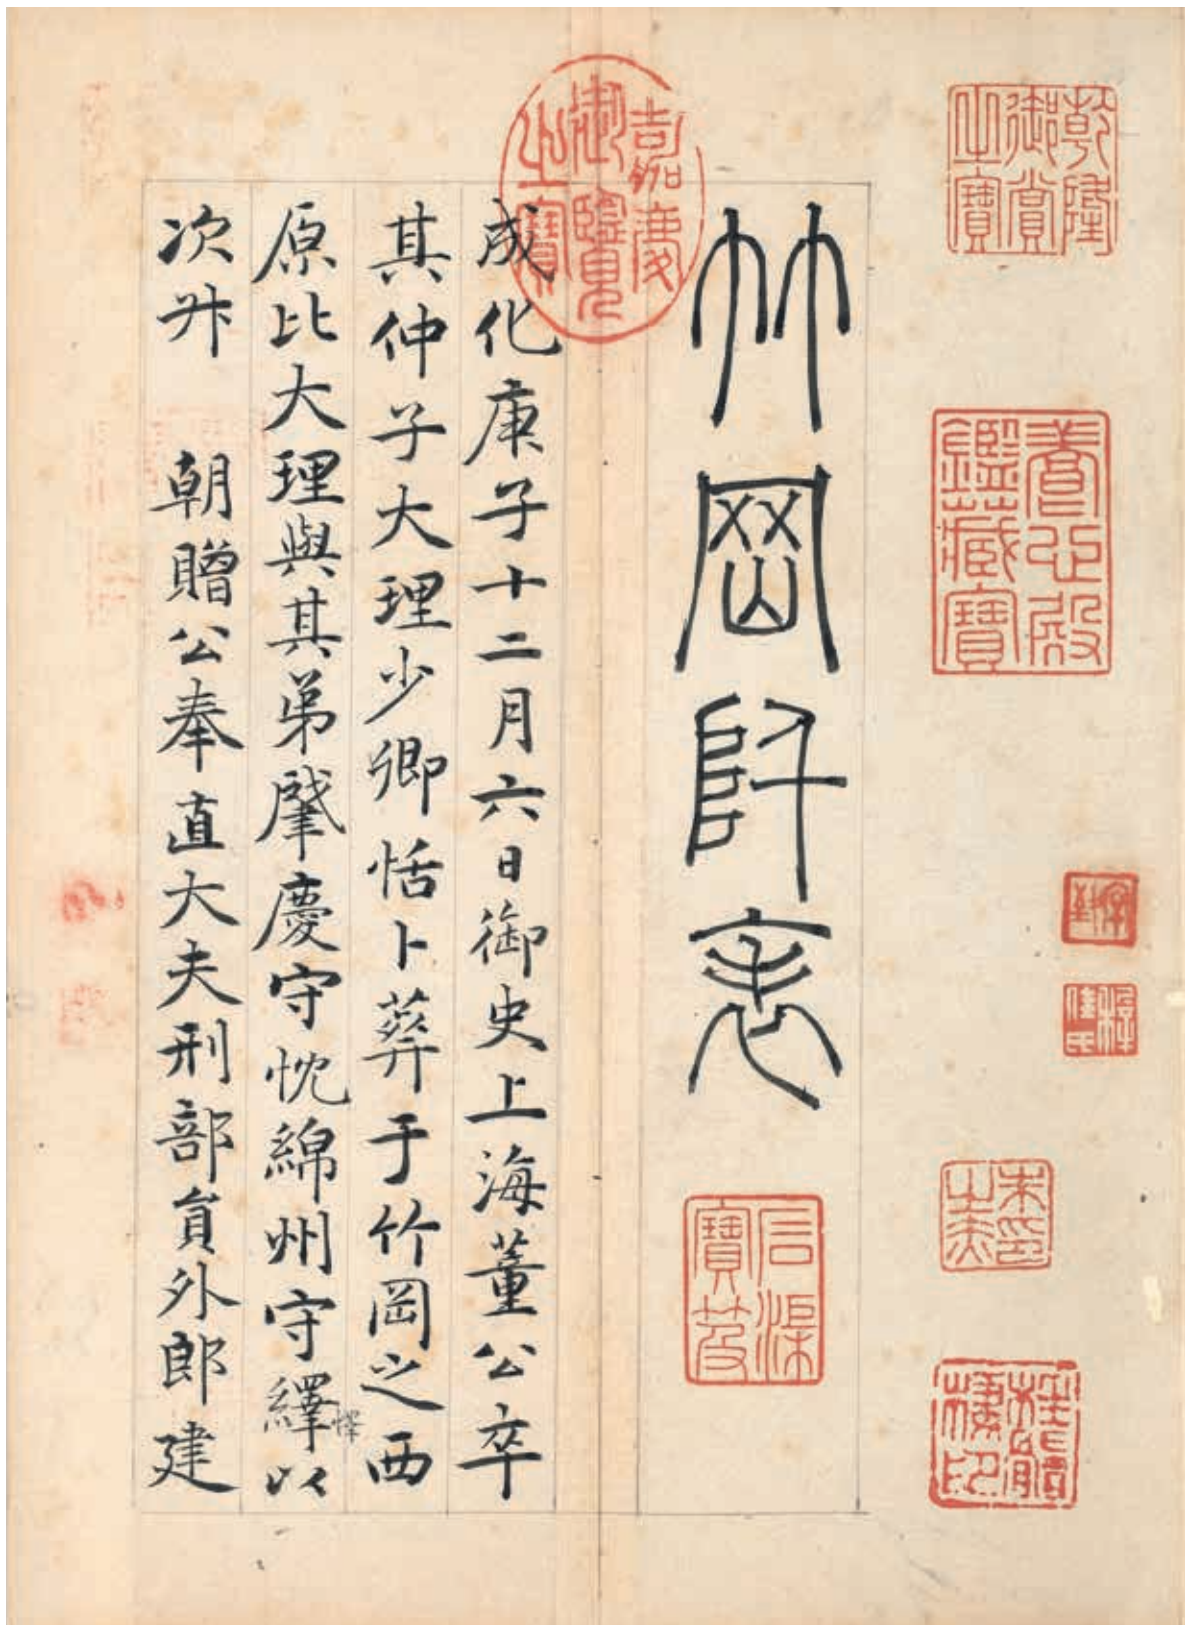 乾隆御賞之寶
養心殿鑑藏寶
朱印之赤
竹岡阡表
石渠寶笈
嘉慶御覽之寶
成化庚子十二月六日御史上海董公卒
其仲子大理少卿恬卜葬于竹岡之西
原比大理與其弟肇慶守忱綿州守繹以
懌
次升 朝贈公奉直大夫刑部員外郎建